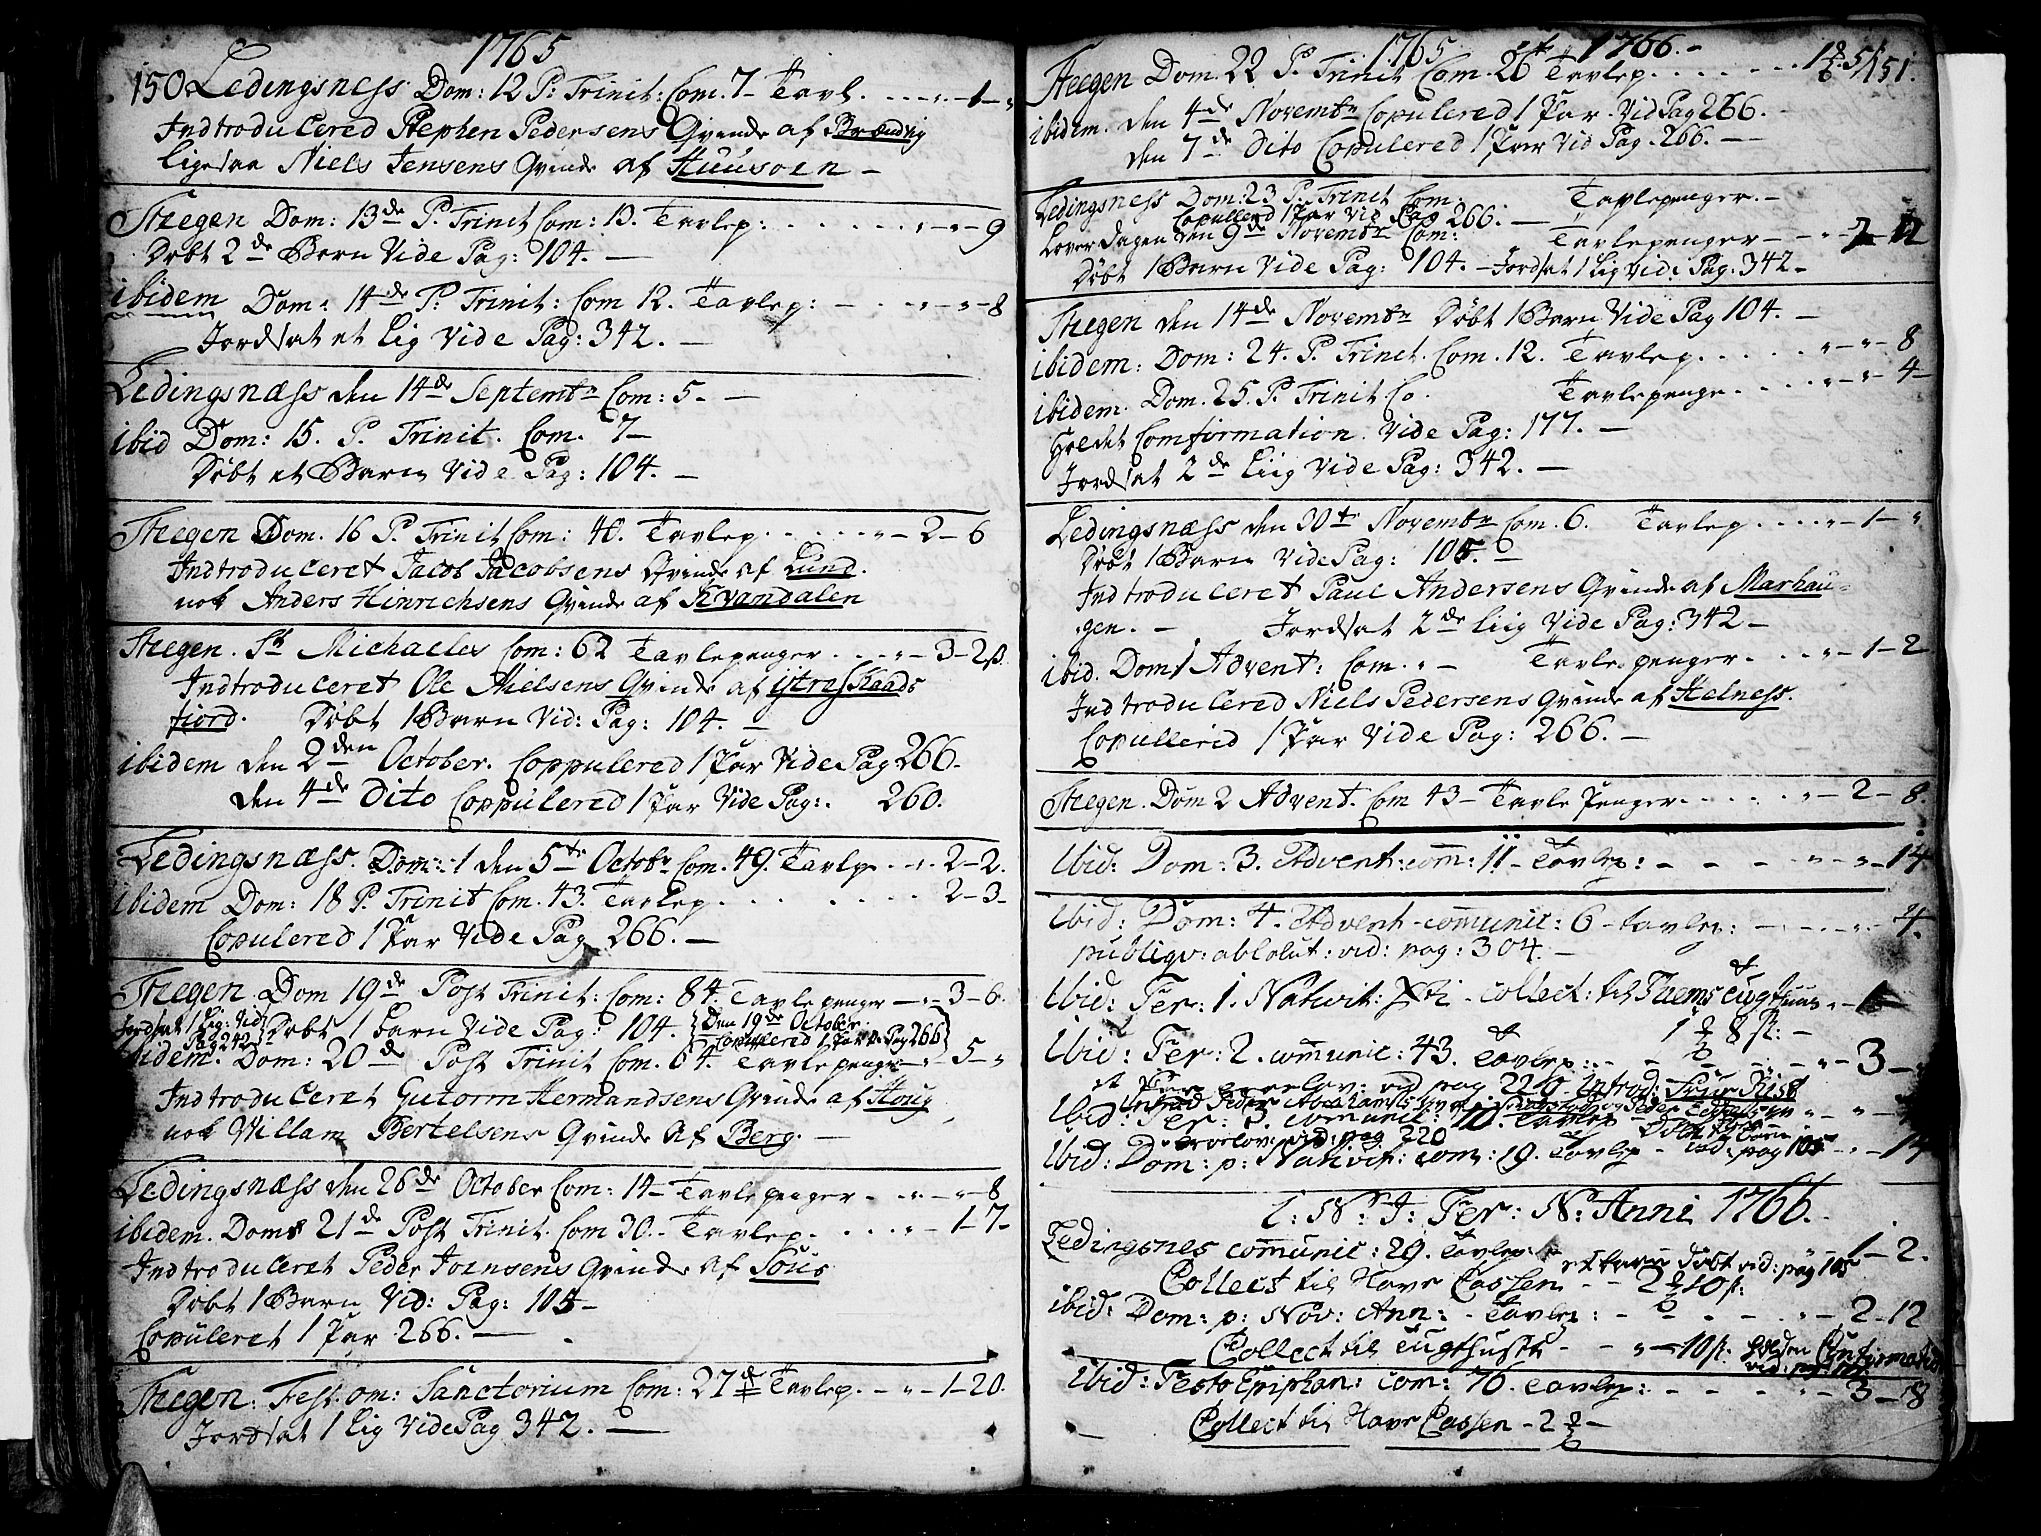 1765
150 Ledingsness. Dom: 12 P: Trinit: Com. 7 - Tavl. . . . „ - 1 - „
Indtroducered Stephen Pedersens Qvinde af Brændvig
ligesaa Niels Jensens Qvinde af Huusøen -
Stegen Dom: 13de P. Trinit Com: 13. Tavlep: . . . . . „ - „ - 9
Døbt 2de Børn Vide Pag: 104. -
ibidem Dom: 14de P. Trinit: Com 12. Tavlep: - . „ - „ - 8
Jordsat et Lig Vide Pag: 342. -
Ledingsnæss den 14de Septembr Com: 5. -
ibid Dom: 15. P. Trinit. Com. 7 -
Døbt et Barn Vide Pag: 104. -
Stegen Dom. 16 P. Trinit Com: 40. Tavlep. . . . . „ - 2 - 6
Indtroduceret Jacob Jacobsens Qvinde af Lund.
nok Anders Hinrichsens Qvinde af Kvandalen
Stegen. St Michaeles Com: 62 Tavlepenger . . . „ - 3 - 2 ß.
Indtroduceret Ole Nielsens Qvinde af
fiord. Døbt 1 Barn Vid: Pag: 104. -
ibidem den 2den October. Coppulered 1 Par Vide Pag 266.
den 4de Dito Coppulered 1 Par Vide Pag: 260.
Ledingsnæss. Dom: 1 den 5te Octobr Com. 49. Tavlp . . „ . 2 - 2.
ibidem Dom: 18 P. Trinit Com. 43. Tavlep . . . . . . . 2 - 3 -
Copulered 1 Par Vide Pag 266. -
Stegen. Dom 19de Post Trinit: Com: 84. Tavlepenger - „ - 3 - 6.
Jordsat 1 Lig: Vid Pag 242 Døbt 1 barn Vide Pag: 104. Den 19de October Copulered 1 Par v. Pag 266
ibidem. Dom: 20de Post Trinit Com. 64. Tavlepenger - 5 - „
Indtroduceret Gutorm Hermandsens Qvinde af Houg
nok Villam Bertelsens Qvinde af Berg. -
Ledingsnæss den 26de October Com: 14 - Tavlepenger - . „ - „ - 8
ibidem. Dom: 21de Post Trinit. Com 30. - Tavlep. . . . „ - 1 - 7 -
Indtroduceret Peder Joensens Qvinde af
Døbt 1 Barn Vid: Pag: 105 -
Copuleret 1 Par 266. -
Stegen: Fest: om: Sanctorium Com: 27 Tavlep. - „ - 1 - 20.
Jordsat 1 Lig Vide Pag 342. -
1765 1766. -
Stegen Dom. 22 P. Trinit Com. 26 Tavlep. . . . . . 1 - 5
151.
ibidem. den 4de Novembr Copulered 1 Par Vid Pag 266. -
den 7de Dito Copulered 1 Par Vid Pag. 266. -
Ledingsness Dom: 23 P. Trinit Com. Tavlepenger. -
Copullered 1 Par Vid Pag 266. -
Løverdagen den 9de Novembr Com: Tavlepenger - - „ - 2 - 12
Døbt 1 Barn Vide Pag: 104. - Jordsat 1 Lig Vide Pag. 342 -
Stegen den 14de Novembr Døbt 1 Barn Vide Pag 104. -
ibidem: Dom: 24. P. Trinit. Com. 12. Tavlep. . . . . „ - „ - 8
ibidem. Dom. 25. P. Trinit Co. Tavlepenge. . . . „ - „ - 4 -
Holdet Comfirmation. Vide Pag: 177. -
Jordsat 2de Liig Vide Pag: 342. -
Ledingsnæss den 30te Novembr Com. 6. Tavlep . . . . „ - 1 - „
Døbt 1 Barn Vide Pag: 105. -
Indtroduceret Paul Andersens Qvinde af Marhau-
gen. - Jordsat 2de Liig Vide Pag: 342 -
ibid. Dom 1 Advent: Com. „ - Tavlepenger. . . . „ - 1 - 2
Indtroducered Niels Pedersens Qvinde af Helness.
Copullerid 1 Par Vide Pag: 266. -
Stegen. Dom 2 Advent. Com 43 - Tavle Penger. . . . . „ - 2 - 8.
Ibid: Dom: 3. Advent: com: 11 - Tavlep: - - - - „ - „ - 14.
Ibid: Dom: 4. Advent - communic: 6 - tavlep: - . . . . „ - 4.
publiqv: absolut: vid: pag: 304. -
Ibid: Fer: 1. Nativit: Xti - collect: til Tugthuus „ -
1 8 ß: -
Ibid: Fer: 2. communic: 43. Tavlep: - - - „ - 3 - „
trolov: vid pag 220 introd:
Ibid: Fer: 3. communic: 10. Tavlep
trolov: vid: pag 220
Ibid: Dom: p: Nativit: com: 19. Tavlep - vid: pag 105 - „ - 14
I: N: J: Fer: N: Anni 1766.
Ledingsnes communic: 29. Tavlep: - 1 - 2.
et barn døbt vid: pag 105
Collect til Havr Cassen - - 2 10 ß:
ibid: Dom: p: Nov: Ann: - Tavlep: - - - - „ - 2 - 12
Collect til Tugthuset - - „ - 10 ß. holden Confirmation
vid: pag:
Ibid: Festo Epiphan: com: 76. Tavlep: - - - - „ - 3 - 8
Collect til Havr Cassen - 2 -